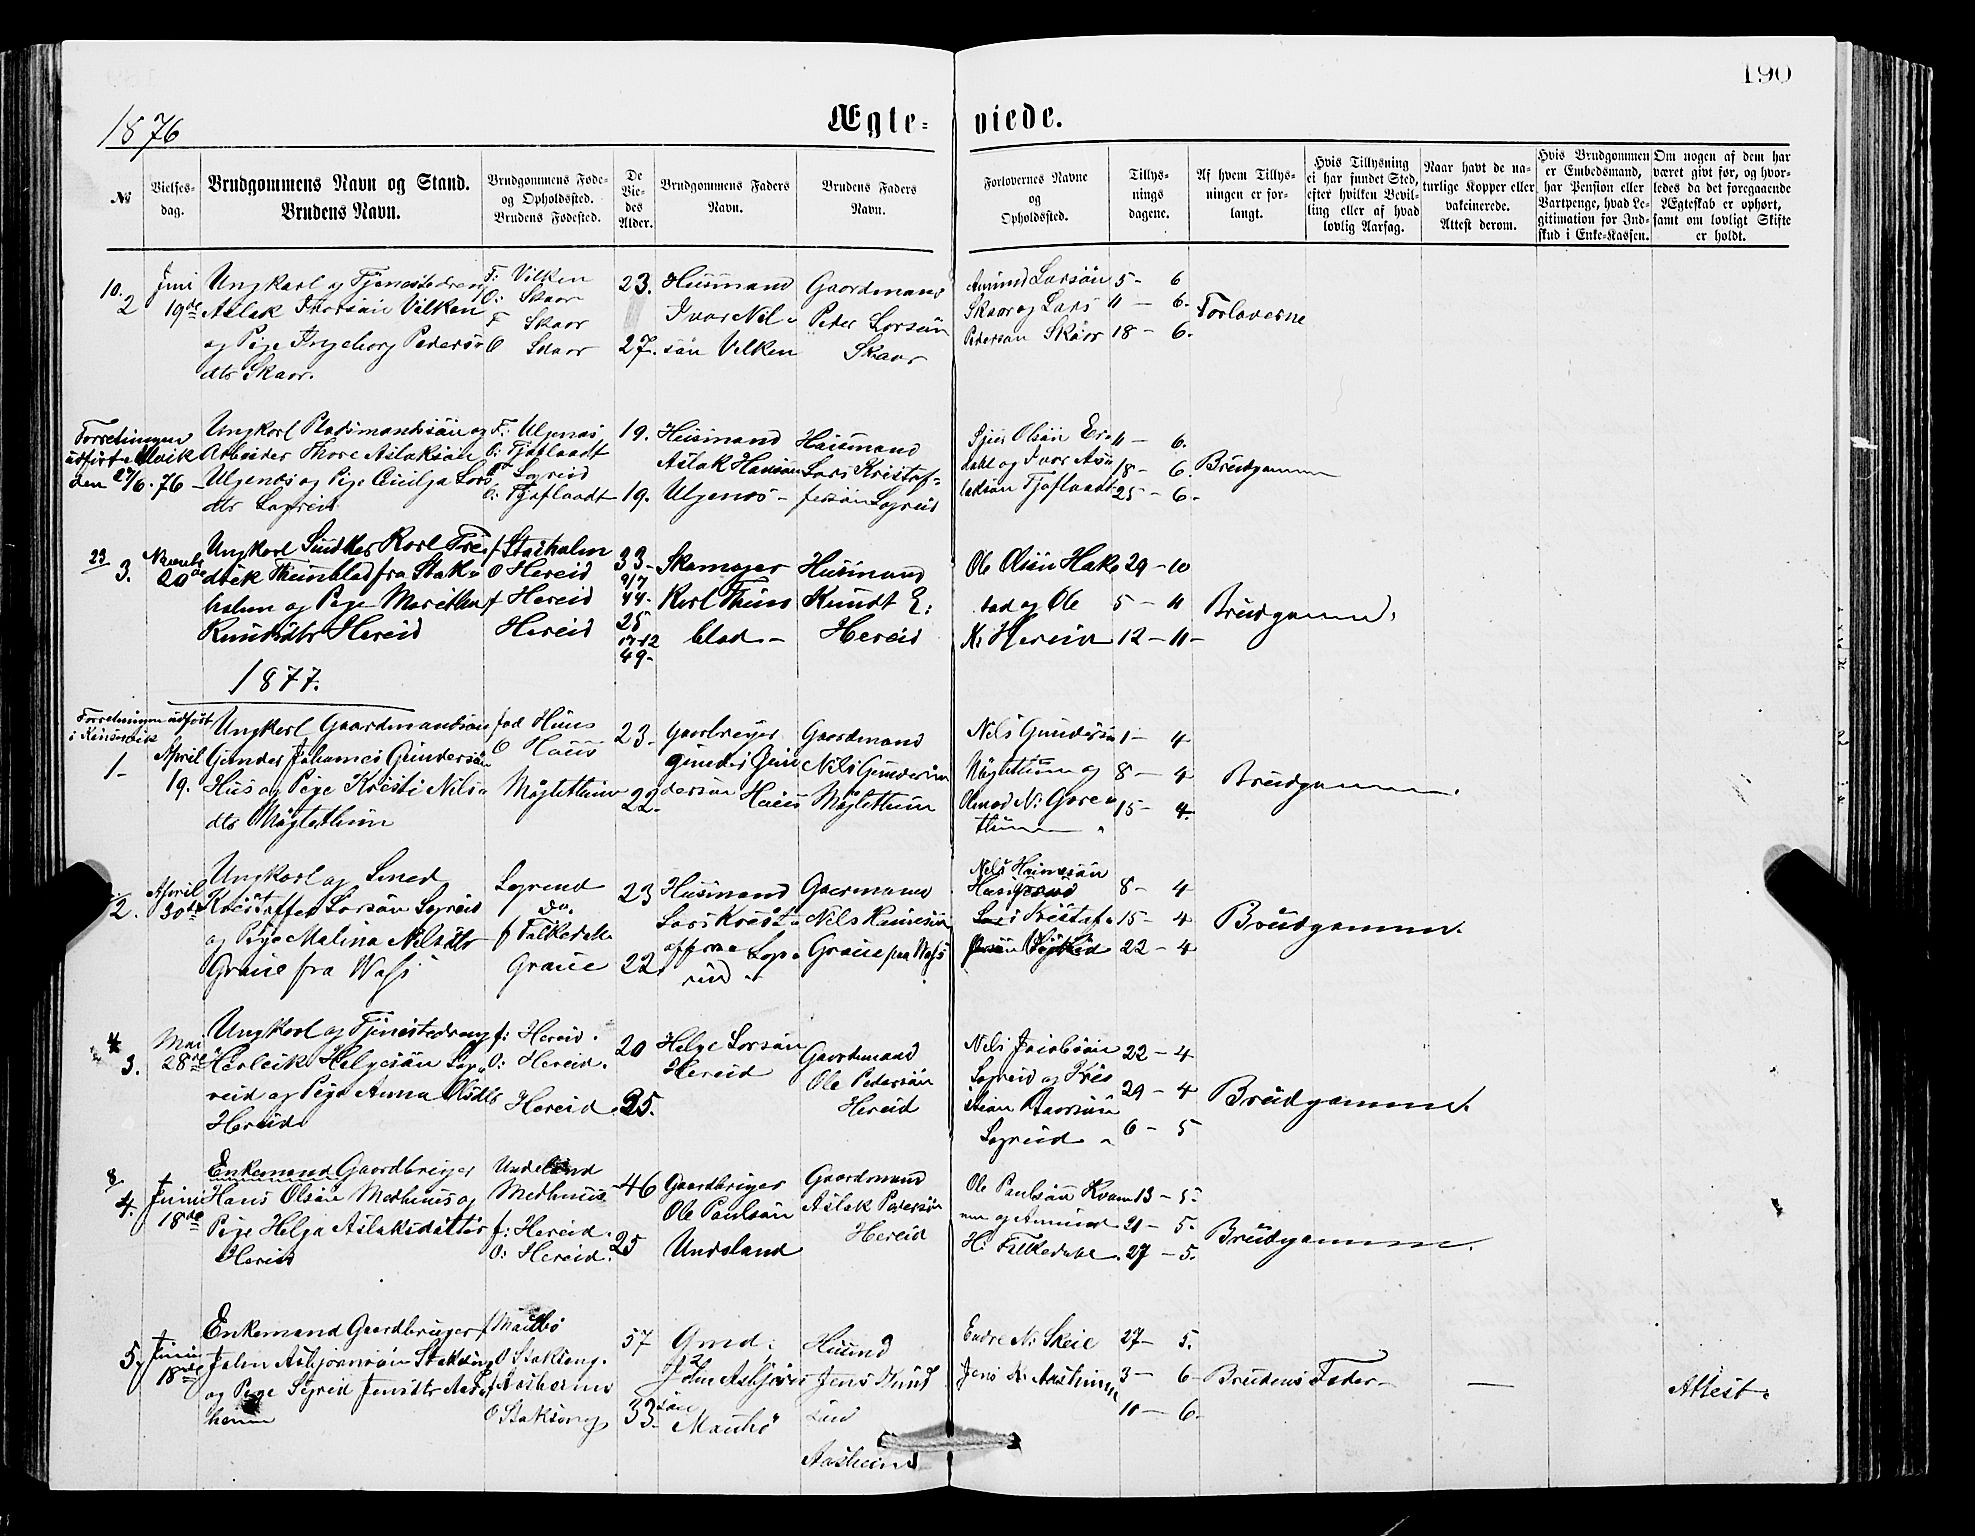 190
1876
Ægte= viede.
No
Vielses-
dag.
Brudgommens Navn og Stand.
Brudens Navn.
Brudgommens Føde-
og Opholdssted.
Brudens Fødested.
De
Vie-
des
Alder.
Brudgommens Faders
Navn.
Brudens Faders
Navn.
Forlovernes Navne
og
Opholdssted.
Tillys-
nings
dagene.
Af hvem Tillys-
ningen er for-
langt.
Hvis Tillysning
ei har fundet Sted,
efter hvilken Bevil-
ling eller af hvad
lovlig Aarsag.
Naar havt de na-
turlige Kopper eller
vakcinerede.
Attest derom.
Hvis Brudgommen
er Embedsmand,
har Pension eller
Vartpenge, hvad Le-
gitimation for Ind-
skud i Enke-Kassen.
Om nogen af dem har
været givt før, og hvor-
ledes da det foregaaende
Ægteskab er ophørt,
samt om lovligt Skifte
er holdt.
10. 2
Juni
19de
Ungkarl og Tjenestedreng
Aslak Ivarsøn Vilken
og Pige Ingeborg Peders-
dtr Skaar.
F: Vilken
O: Skaar
F Skaar
O Skaar
23.
27.
Husmand
Ivar Nil-
søn Velken
Gaardmand
Peder Larsøn
Skaar
Amund Larsøn
Skaar og Lars
Pedersøn Skaar
5- 6
11 - 6.
18 - 6.
Forloverne
Forretningen
udført i Ulvik
den 27/6. 76 -
Ungkarl Pladsmandssøn og
Arbeider Thore Aslaksøn
Ulgenæs og Pige Cicilja Lars
dtr Sagreid
F: Ulgenæs
O: Tjoflaadt
F Sagreid
O: Tjoflaadt
19.
19.
Husmand
Aslak Hansøn
Ulgenæs -
Husmand
Lars Kristof=
fersøn Sagreid
Sjur Olsøn Er-
dahl og Ivar Asu
ladsøn Tjoflaadt
11 - 6.
18 - 6.
25 - 6-
Brudgommen
23
3.
20de
Ungkarl Snidker Karl Fre-
drik Thunblad fra Stok-
holm og Pige Maritha
Knudsdtr Hereid
f Stockholm
O Hereid
f Hereid
Hereid
33-
9/7
44-
25
17-12
49-
Skomager
Karl Thun
blad -
Husmand
Knudt E:
Hereid
Ole Olsøn Hake
stad og Ole
K: Hereid
29 - 10
5 - 11
12 - 11-
Brudgommen
1877.
Forretningen udført
i Kinservik
1-
April
19.
Ungkarl Gaardmandssøn
Gunder Johannes Gundersøn
Hus og Pige Kristi Nils-
dtr Mögletthun
Huus
O Haus
Mögletthun
23-
22-
Gaardbruger
Gunder Gun
dersøn Huus
Gaardmand
Nils Gundersøn
Mögletthun
Nils Gundersøn
Mögletthun og
1- 4
8 - 4
15 - 4
Brudgommen.
2.
April
30te
Ungkarl og Smed
Kristoffer Larsøn Sagreid
og Pige Malina Nilsdtr
Graue fra Vofs
Sagreid
do.
f Falkedal
Graue
23
22
Husmand
Lars Kristo
Gaardmand
Nils Hansøn
Graue paa Vofs
8- 4
15 - 4
22 - 4
Brudgommen.
3.
Mai
28de
Ungkarl og Tjenestedreng
Herleik Helgesøn Sag-
reid og Pige Anna Olsdtr
Hereid
f: Hereid.
O: Hereid.
Hereid
20
25.
Helge Larsøn
Hereid
Gaardmand
Ole Pedersøn
Hereid
Nils Jacobsøn
Sagreid og Kris
Sagreid -
22 - 4
29 - 4
6 - 5
Brudgommen.
8
4.
Juni
18de
Enkemand Gaardbruger
Hans Olsøn Medhuus og
Pige Helga Aslaksdatter
Hereid
Undeland
Medhuus
f: Hereid.
O: Hereid.
46
25
Gaardbruger
Ole Paulsøn
Undeland
Gaardmand
Aslak Pedersøn
Hereid
Ole Paulsøn Kvam
men og Amund
H: Felkedahl.
13 - 5.
21 - 5.
27 - 5.
Brudgommen.
5.
Juni
18de
Enkemand Gaardbruger
John Asbjørnsøn Stakseng
og Pige Sigrid Jensdtr Aas-
heim
f Maubø
O Staksong.
f Aasheim
O Staksong
57
33-
Gmd.
John Asbjørn
søn
Maubø
Husmd
Jens Knud
søn
Aasheim
Endre N: Skeie
Jens K: Aasheim
27- 5.
3 - 6-
10 - 6-
Brudens Fader -
Attest.